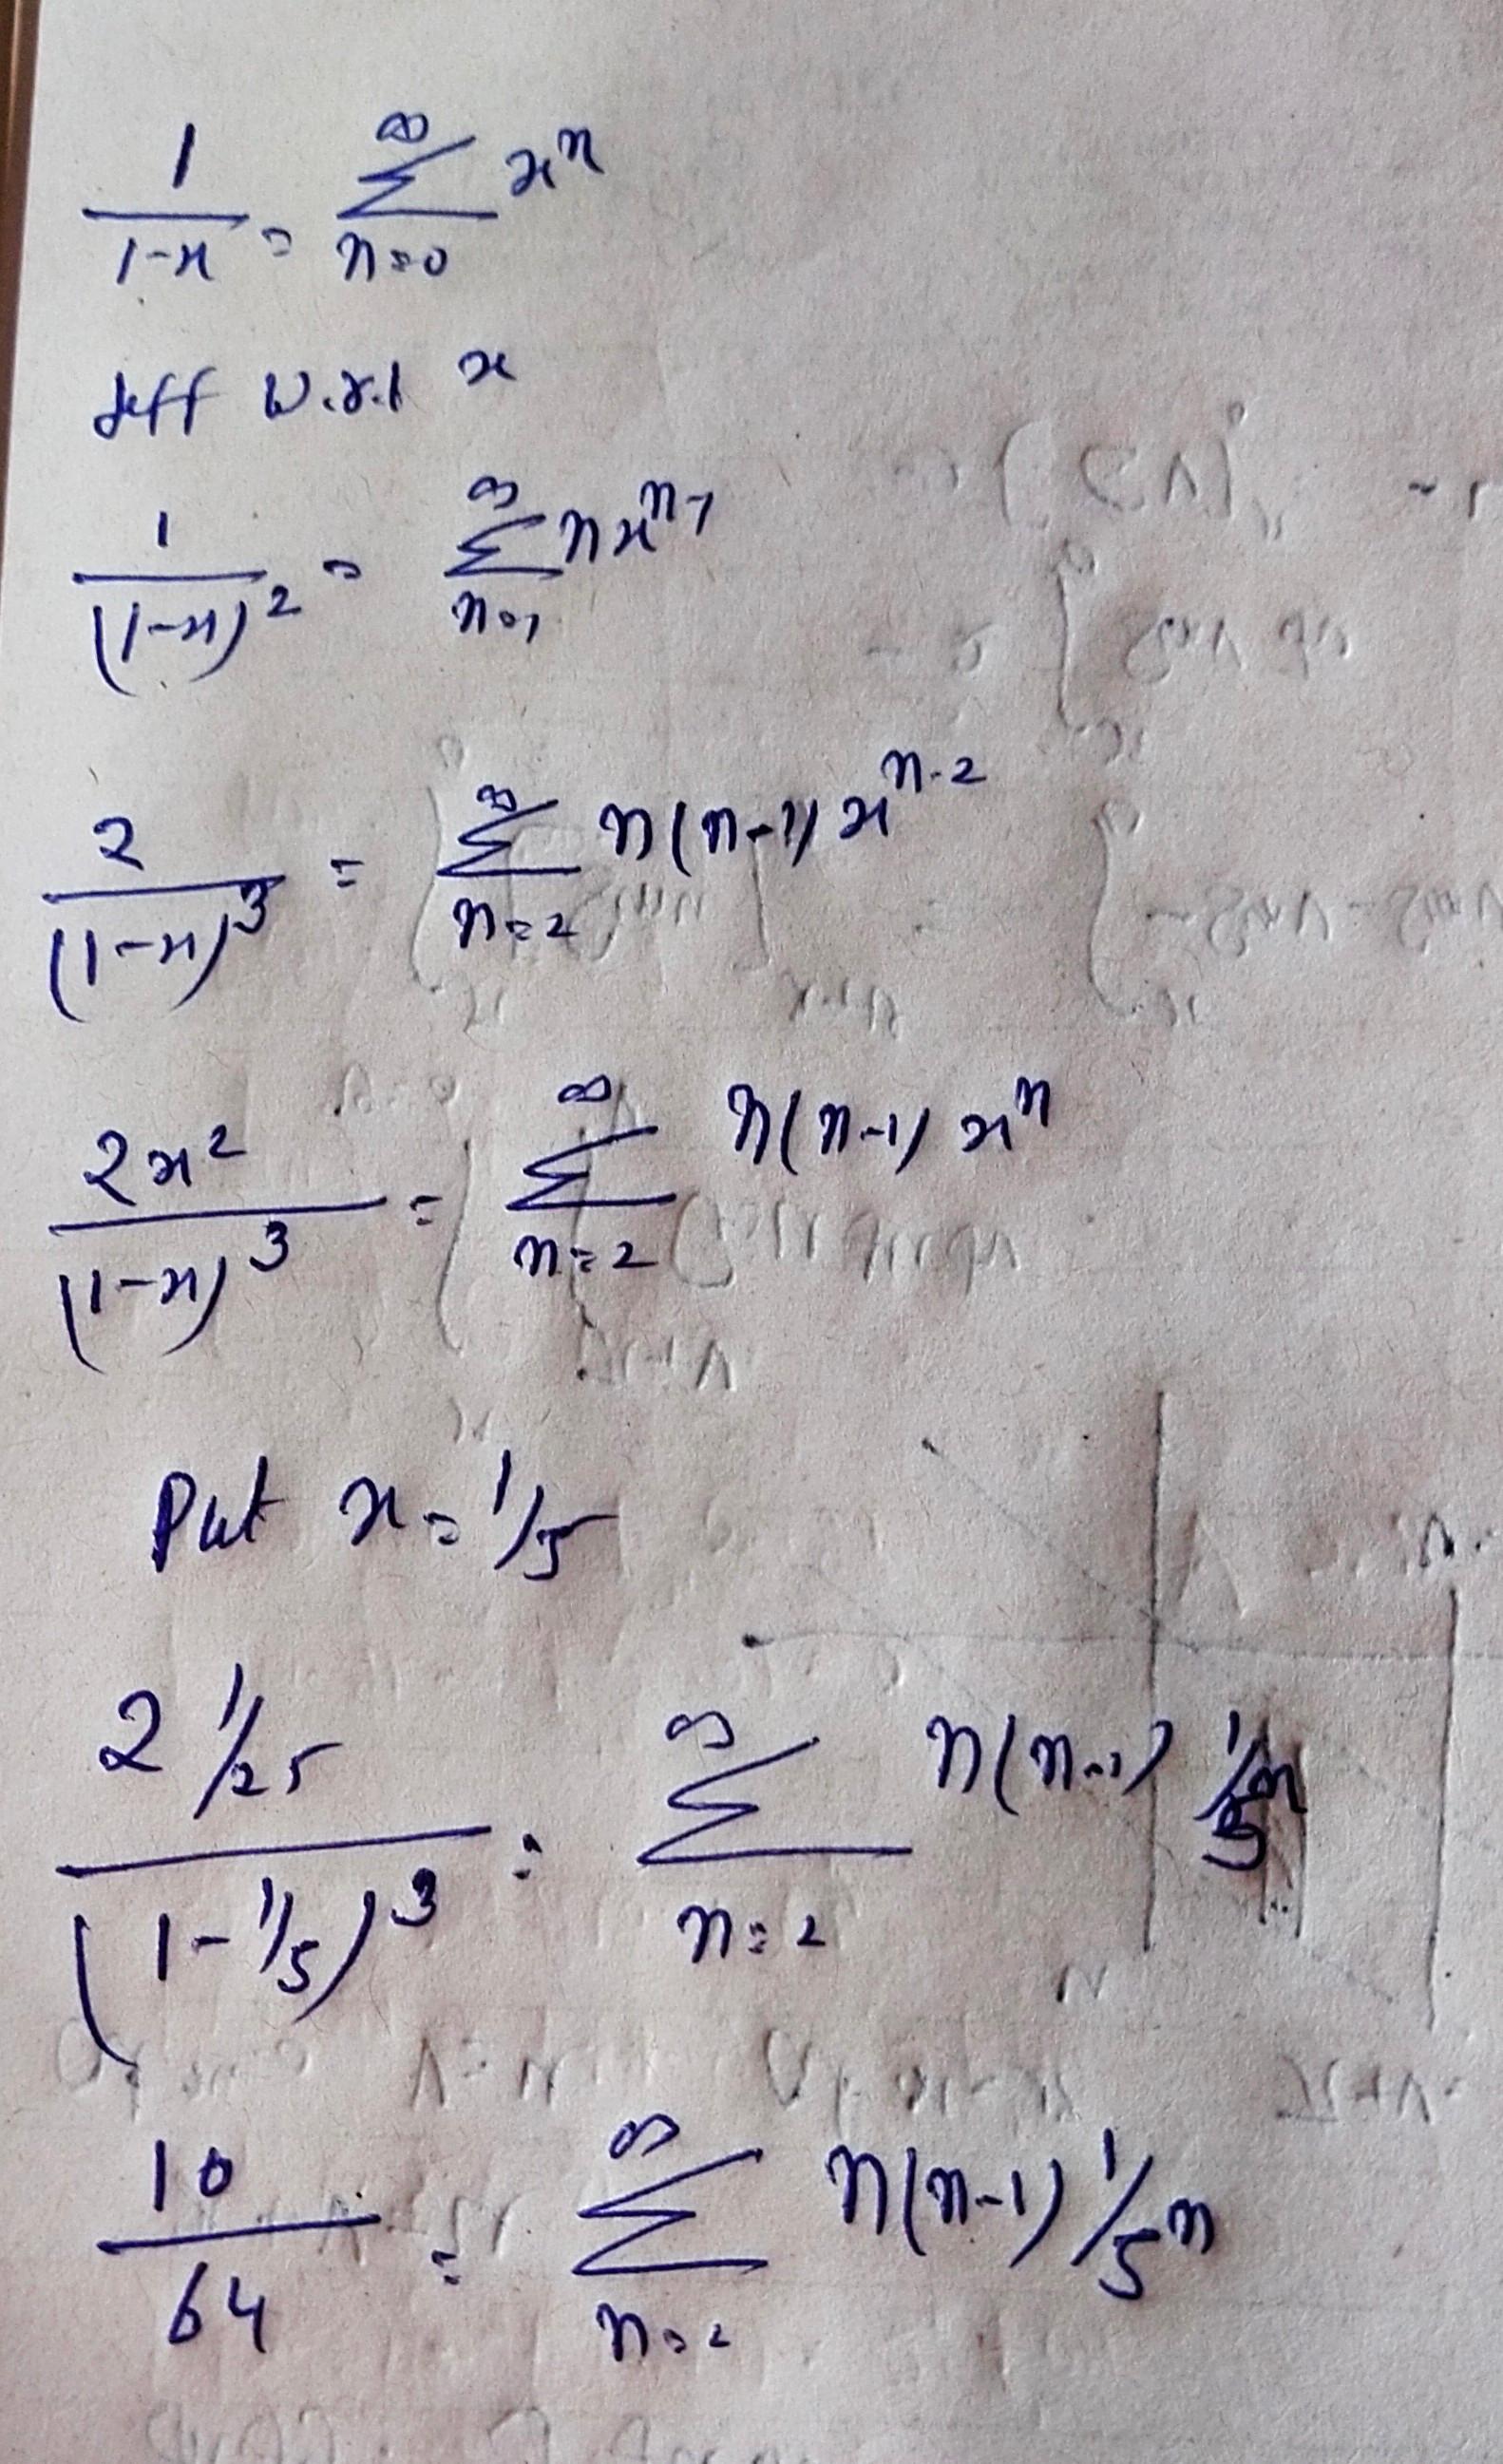 1/(1-x) = ∞∑n=0 x^n
diff w.r.t x
1/(1-x)^2 = ∞∑n=1 nx^(n-1)
2/(1-x)^3 = ∞∑n=2 n(n-1) x^(n-2)
2x^2/(1-x)^3 = ∞∑n=2 n(n-1) x^n
Put x = 1/5
2 1/25/(1-1/5)^3 = ∞∑n=2 n(n-1) 1/5^n
10/64 = ∞∑n=2 n(n-1) 1/5^n